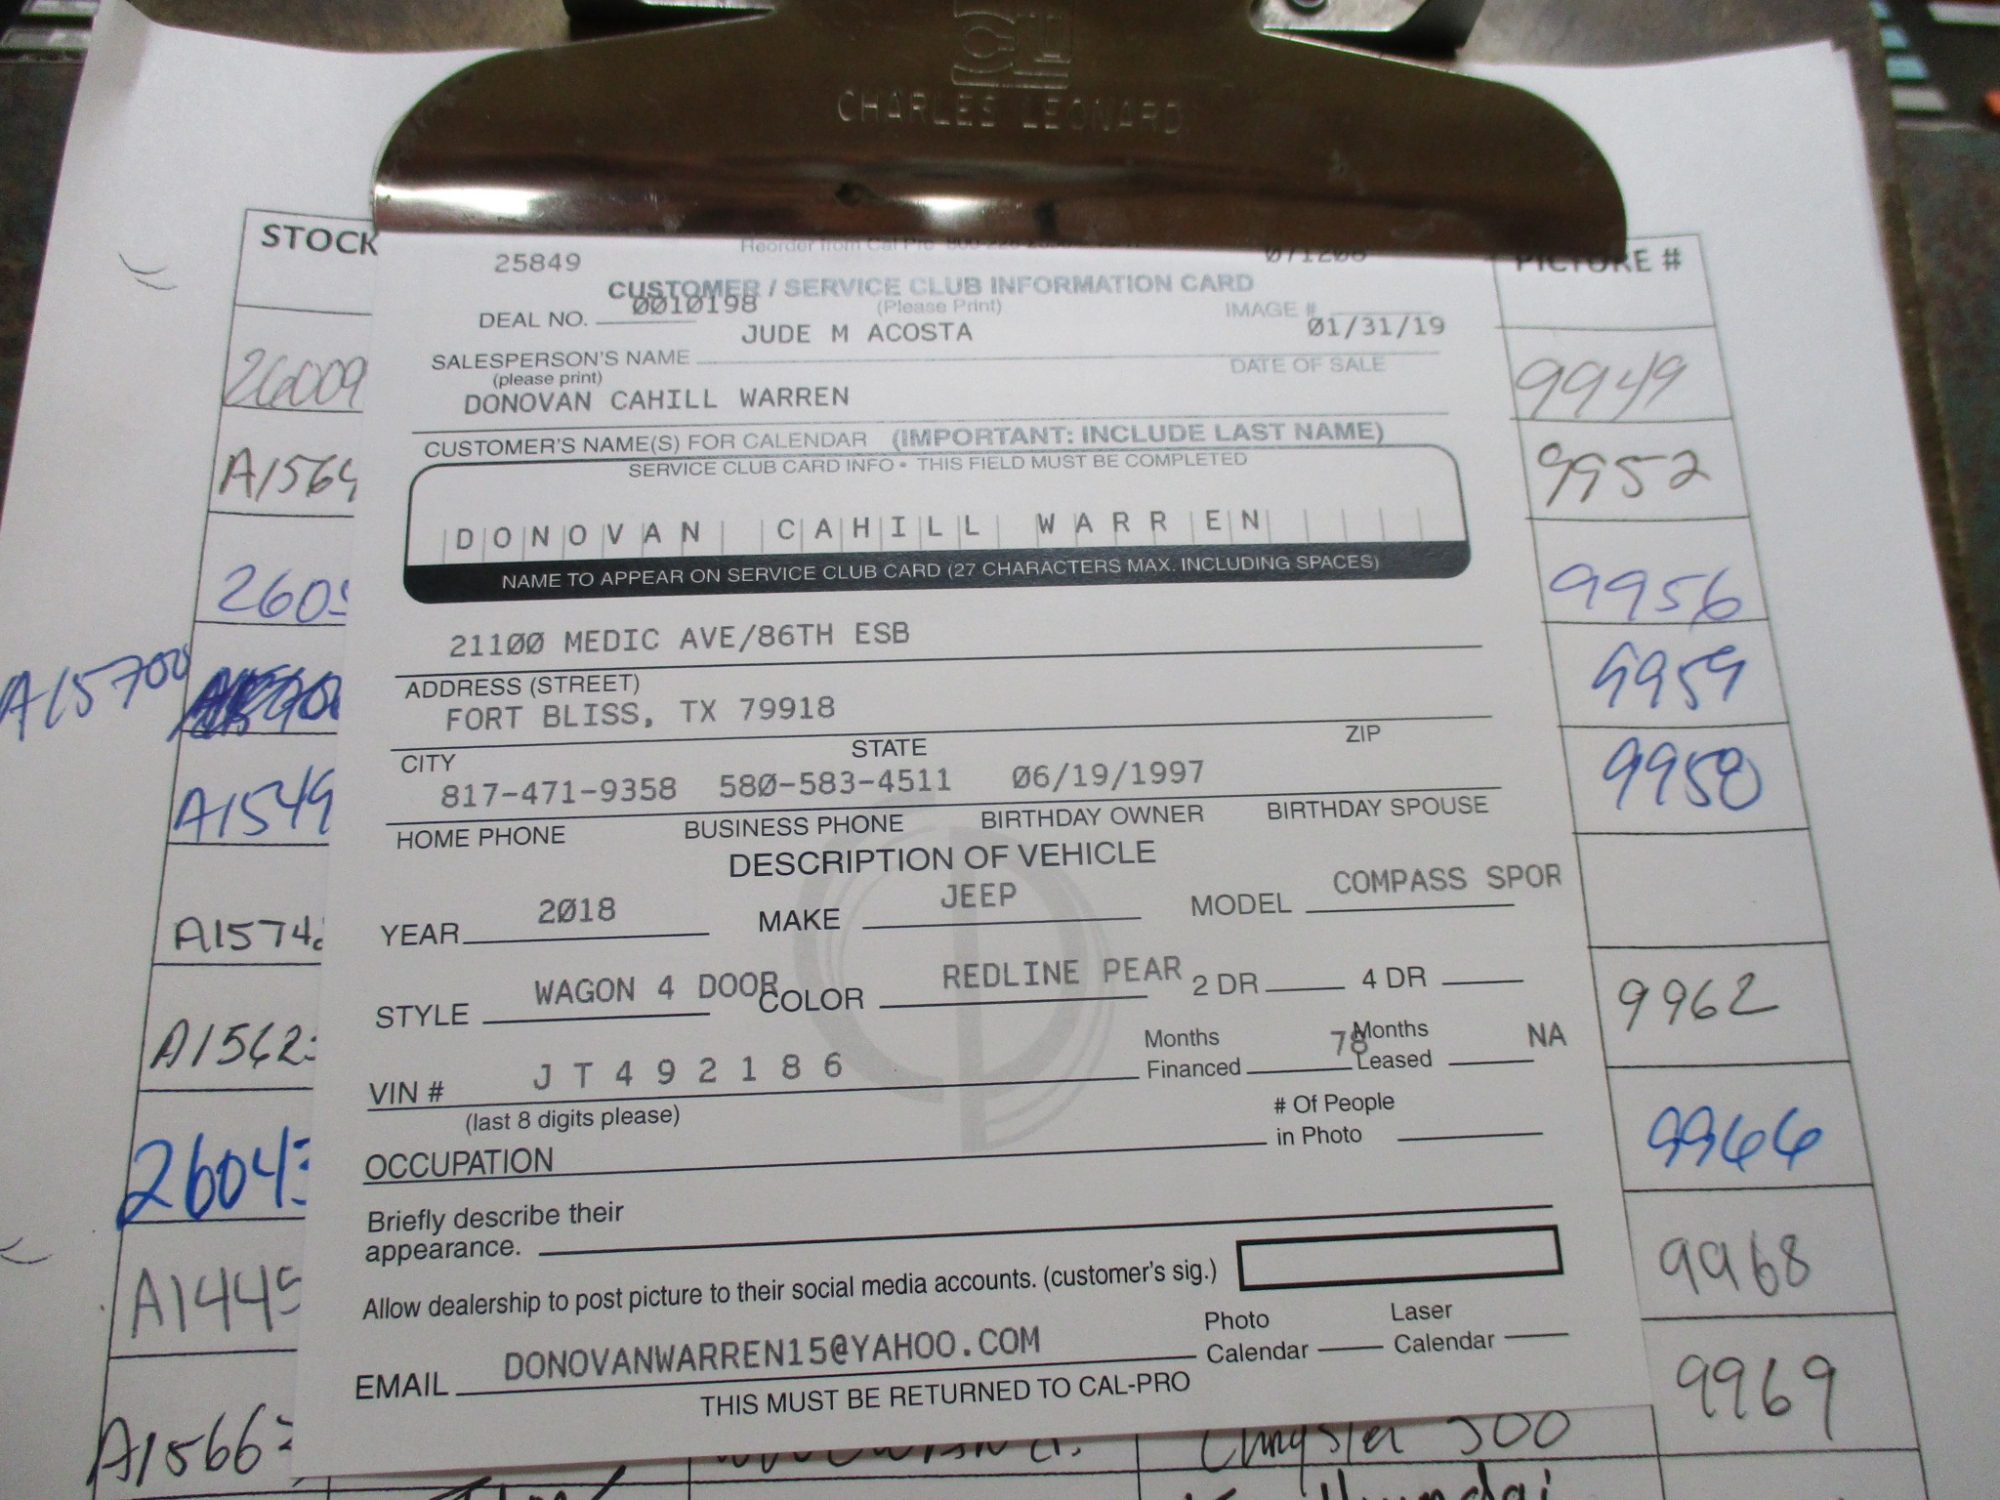 CHARLES LEONARD
STOCK
PICTURE #
25849
CUSTOMER / SERVICE CLUB INFORMATION CARD
(Please Print)
DEAL NO. 0010198
IMAGE #
JUDE M ACOSTA 01/31/19
SALESPERSON'S NAME DATE OF SALE
(please print)
DONOVAN CAHILL WARREN
CUSTOMER'S NAME(S) FOR CALENDAR (IMPORTANT: INCLUDE LAST NAME)
SERVICE CLUB CARD INFO • THIS FIELD MUST BE COMPLETED
DONOVAN CAHILL WARREN
NAME TO APPEAR ON SERVICE CLUB CARD (27 CHARACTERS MAX. INCLUDING SPACES)
21100 MEDIC AVE/86TH ESB
ADDRESS (STREET)
FORT BLISS, TX 79918
CITY STATE ZIP
817-471-9358 580-583-4511 06/19/1997
HOME PHONE BUSINESS PHONE BIRTHDAY OWNER BIRTHDAY SPOUSE
DESCRIPTION OF VEHICLE
YEAR 2018 MAKE JEEP MODEL COMPASS SPOR
STYLE WAGON 4 DOOR COLOR REDLINE PEAR 2 DR 4 DR
VIN # J T 4 9 2 1 8 6 Months Financed 78 Months Leased NA
(last 8 digits please)
OCCUPATION # Of People in Photo
Briefly describe their
appearance.
Allow dealership to post picture to their social media accounts. (customer's sig.)
EMAIL DONOVANWARREN15@YAHOO.COM Photo Calendar Laser Calendar
THIS MUST BE RETURNED TO CAL-PRO
26009
A1564
2605
A15700
A1549
A1574
A1562
2604
A1445
A1566
9949
9952
9956
9959
9950
9962
9966
9968
9969
Chrysler 300
Hyundai